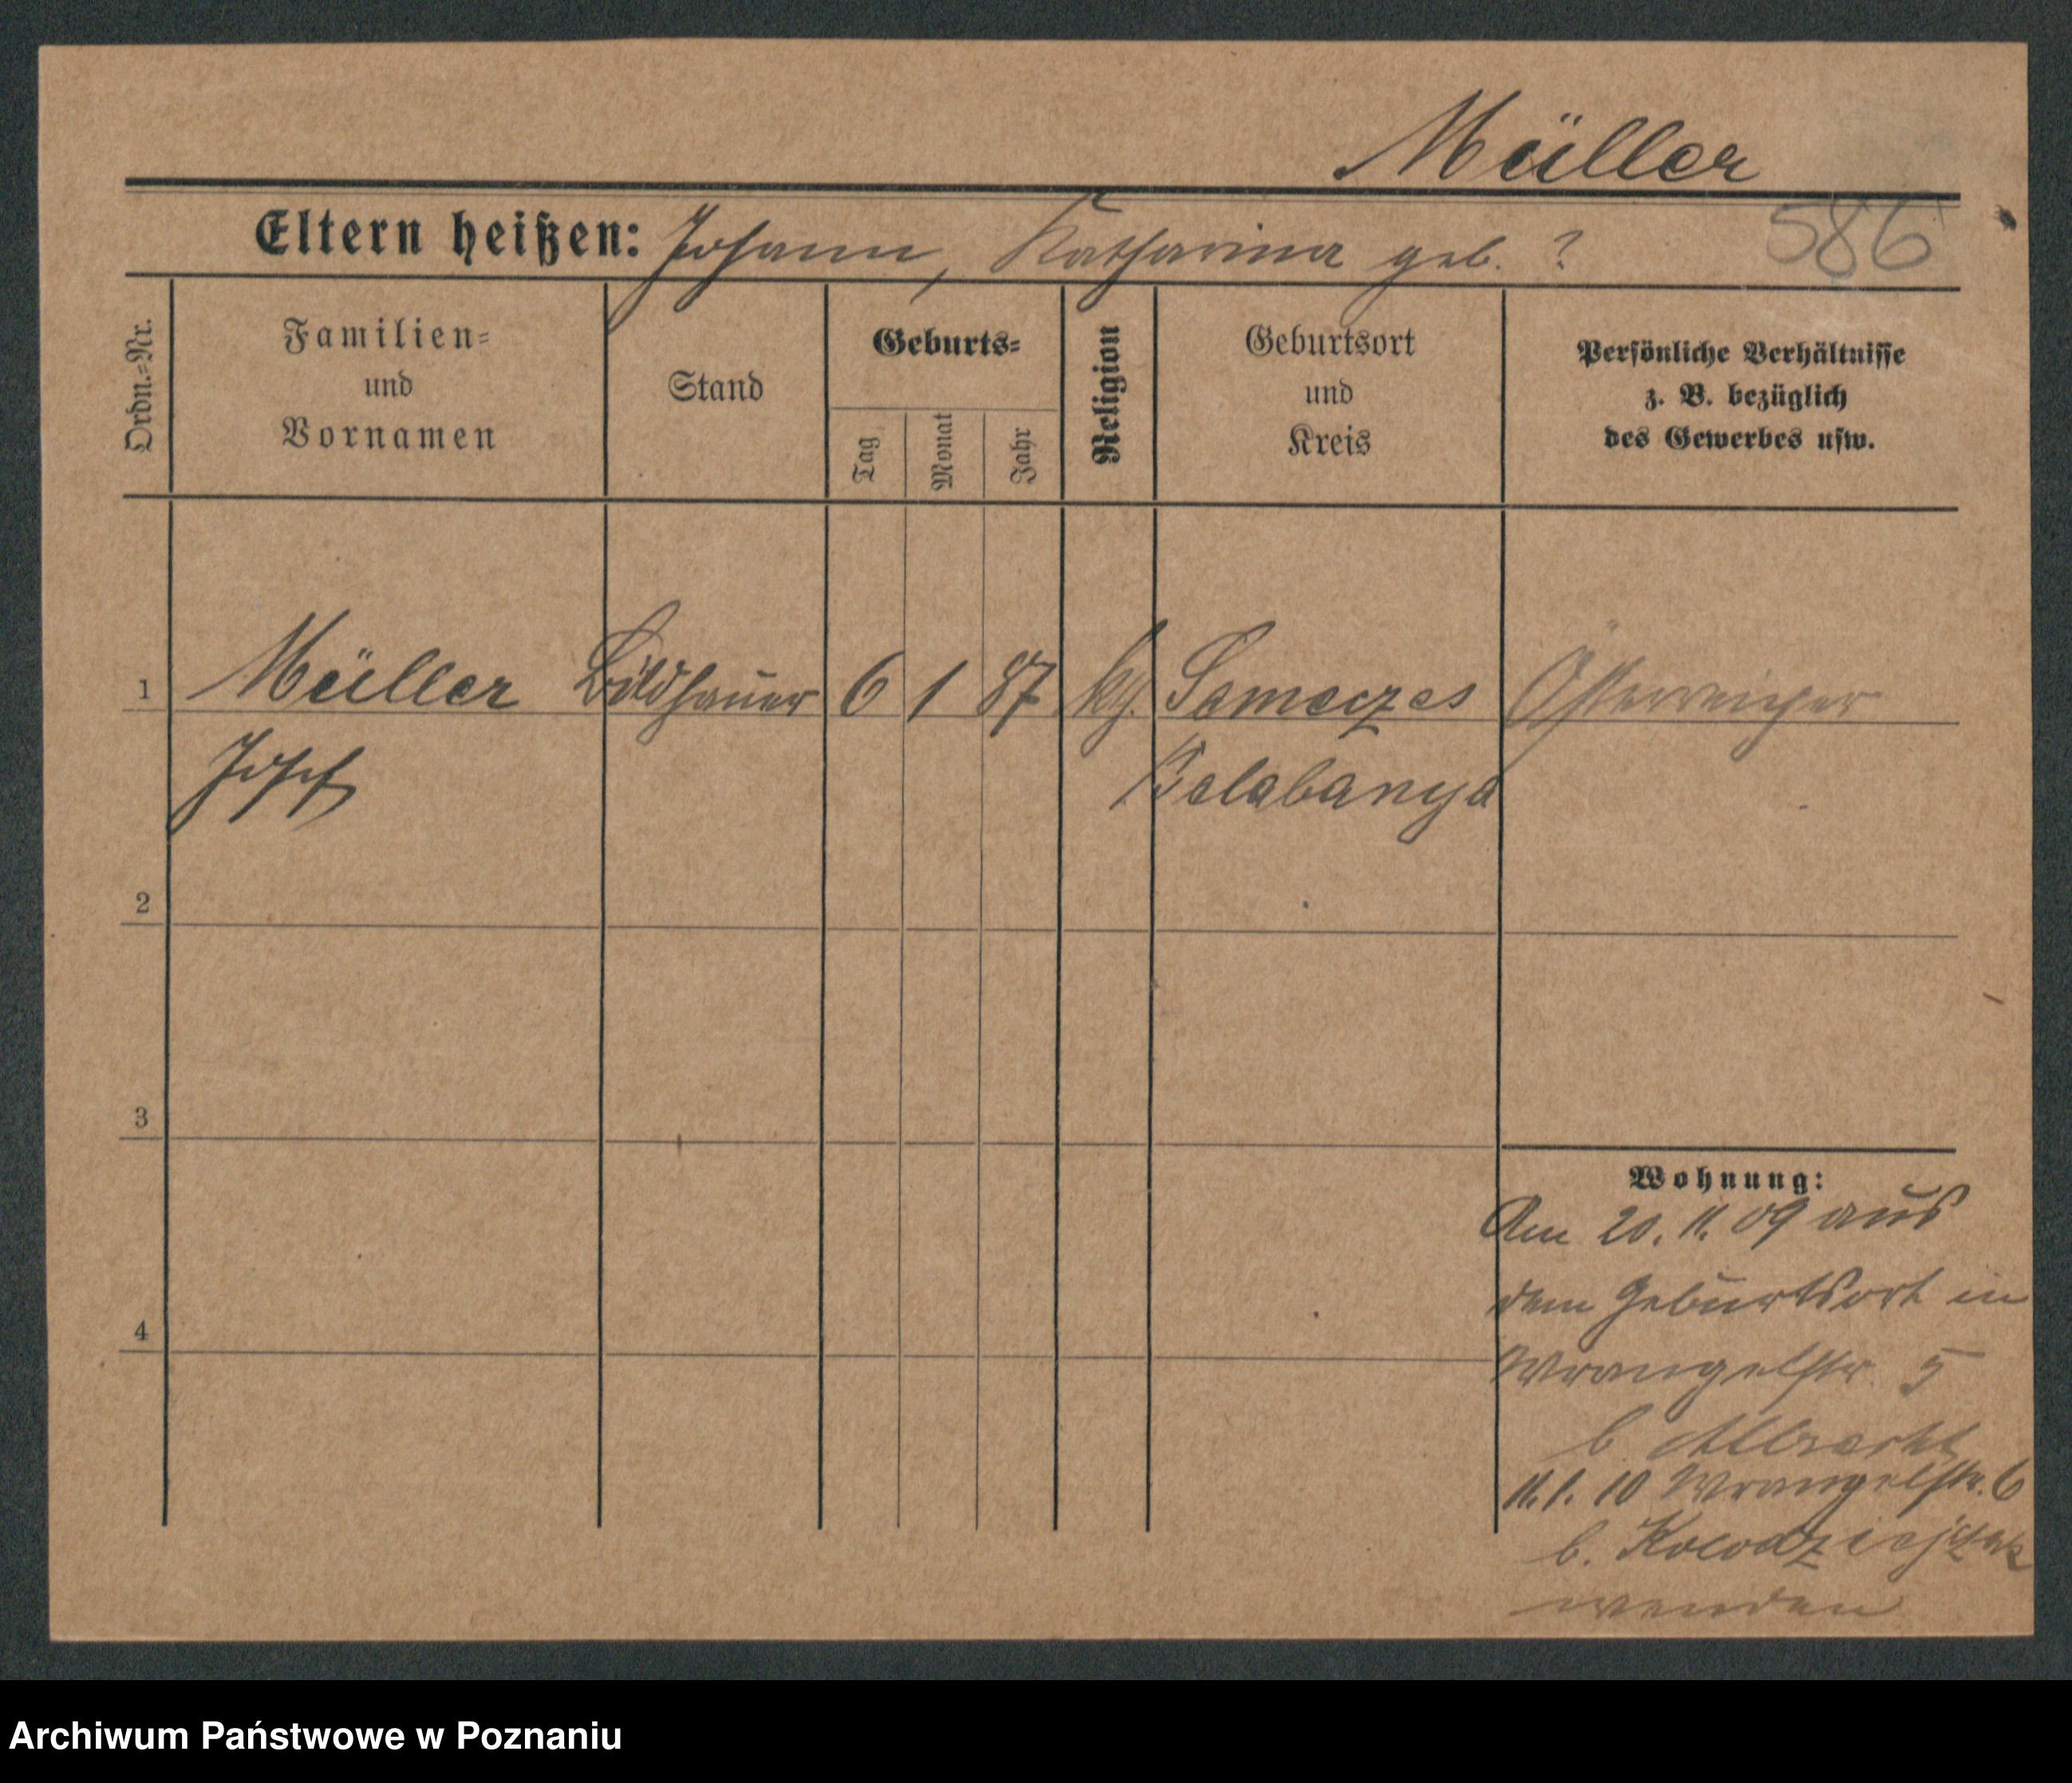 Müller
Eltern heißen: Johann, Katharina geb. ?
586
Ordn.=Nr.
Familien=
und
Vornamen
Stand
Geburts=
Tag
Monat
Jahr
Religion
Geburtsort
und
Kreis
Persönliche Verhältnisse
z. B. bezüglich
des Gewerbes usw.
1 Müller Bildhauer 6 1 87 kth. Österreicher
Josef Belabanya
2
3
4
Wohnung:
Am 20. 11. 09 aus
dem Geburtsort in
Wrangelstr. 5
b. Albrecht
11. 1. 10 Wrangelstr. 6
b. Kolodziejczak
wenden
Archiwum Państwowe w Poznaniu